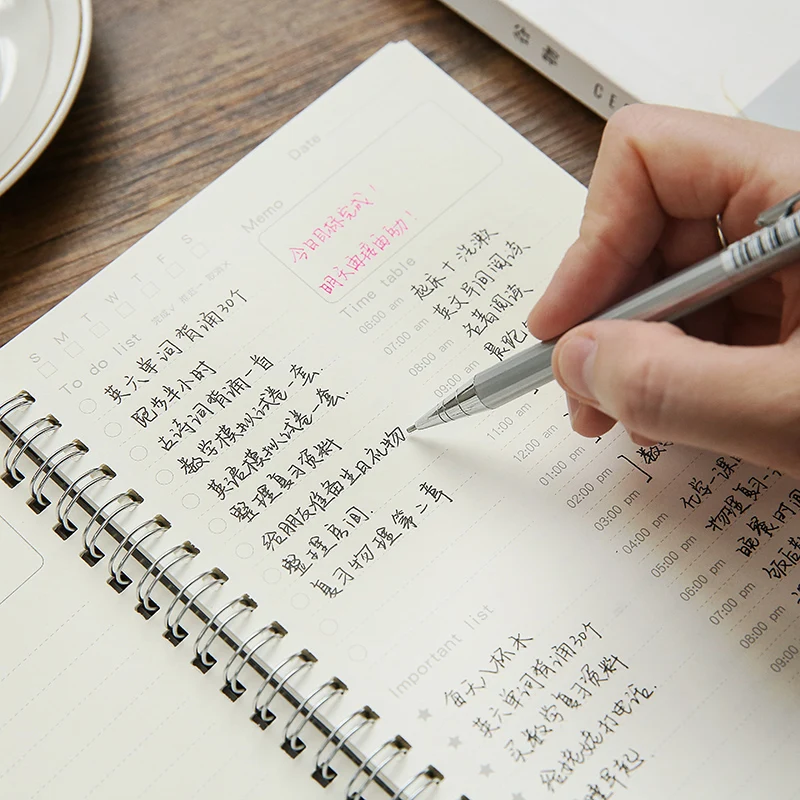 Date
Memo
今日目标完成！
明天再接再励！
S M T W T F S
To do list
英六单词背诵30个
跑步半小时
古诗词背诵一首
数学模拟试卷一套.
英语模拟试卷一套.
整理复习资料
给朋友准备生日礼物
整理房间.
复习物理第二章
Time table
08:00 am 起床+洗漱
07:00 am 英文早间阅读
08:00 am 名著阅读
09:00 am 晨跑
11:00 am
12:00 am
01:00 pm
02:00 pm
03:00 pm
04:00 pm 化学一课
05:00 pm 物理复习
06:00 pm 晚餐时间
07:00 pm 饭后
08:00 pm
09:00
Important list
每天八杯水
英六单词背诵30个
买数学复习资料
给姥姥打电话.
早起.